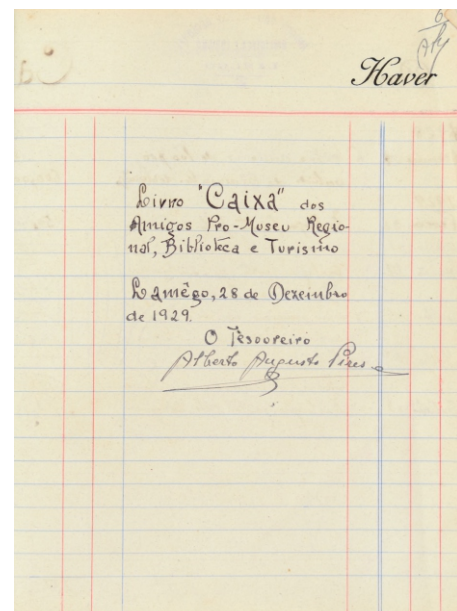 6
Haver
Livro "Caixa" dos
Amigos Pro-Museu Regio-
nal, Biblioteca e Turismo
Lamêgo, 28 de Dezembro
de 1929.
O Tesoureiro
Alberto Augusto Pires